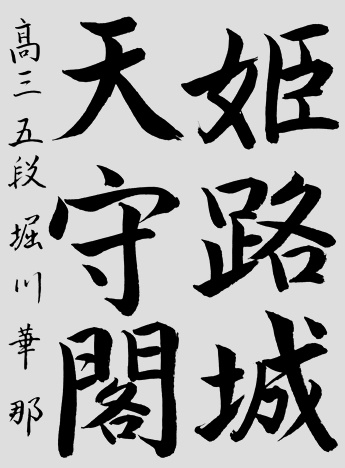 姫路城
天守閣
高三五段堀川華那